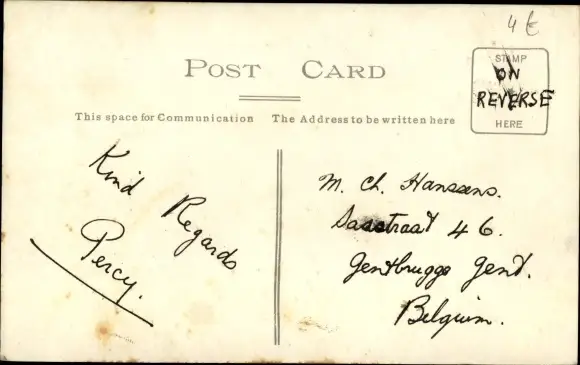 4 €
POST CARD
STAMP
ON
REVERSE
HERE
This space for Communication The Address to be written here
Kind
Regards
Percy.
M. Ch. Hanssens.
Sasstraat 46.
Gentbrugge Gend.
Belguim.